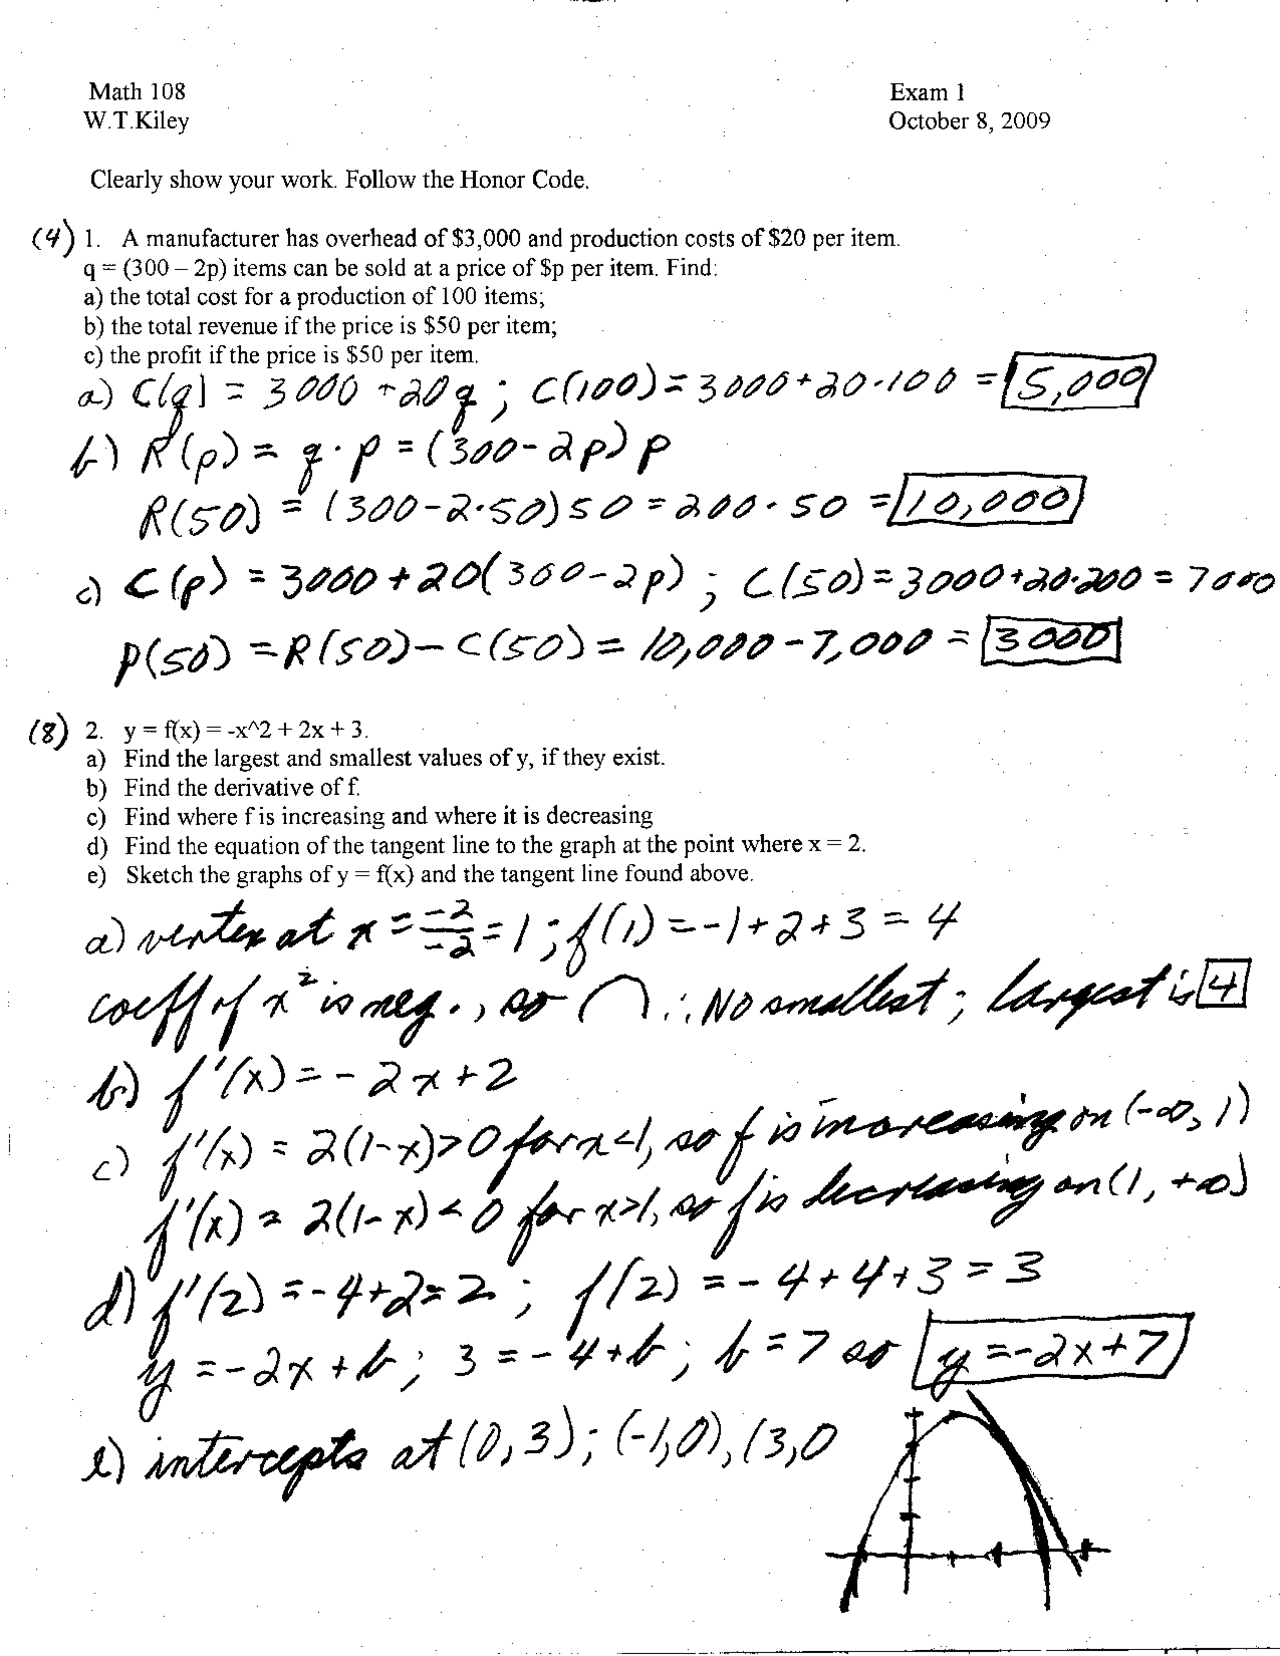 Math 108 Exam 1
W.T.Kiley October 8, 2009
Clearly show your work. Follow the Honor Code.
(4) 1. A manufacturer has overhead of $3,000 and production costs of $20 per item.
q = (300 – 2p) items can be sold at a price of $p per item. Find:
a) the total cost for a production of 100 items;
b) the total revenue if the price is $50 per item;
c) the profit if the price is $50 per item.
a) C(q) = 3000 + 20q ; C(100) = 3000 + 20·100 = 5,000
b) R(p) = q · p = (300 - 2p) p
R(50) = (300 - 2·50) 50 = 200 · 50 = 10,000
c) C(p) = 3000 + 20(300 - 2p) ; C(50) = 3000 + 20·200 = 7000
P(50) = R(50) - C(50) = 10,000 - 7,000 = 3000
(8) 2. y = f(x) = -x^2 + 2x + 3.
a) Find the largest and smallest values of y, if they exist.
b) Find the derivative of f.
c) Find where f is increasing and where it is decreasing
d) Find the equation of the tangent line to the graph at the point where x = 2.
e) Sketch the graphs of y = f(x) and the tangent line found above.
a) vertex at x = -2/-2 = 1 ; f(1) = -1 + 2 + 3 = 4
coeff of x² is neg., so ∩ ∴ No smallest ; largest is 4
b) f'(x) = -2x + 2
c) f'(x) = 2(1-x) > 0 for x<1, so f is increasing on (-∞, 1)
f'(x) = 2(1-x) < 0 for x>1, so f is decreasing on (1, +∞)
d) f'(2) = -4+2=2 ; f(2) = -4 + 4 + 3 = 3
y = -2x + b ; 3 = -4 + b ; b = 7 so y = -2x + 7
e) intercepts at (0, 3) ; (-1,0), (3,0